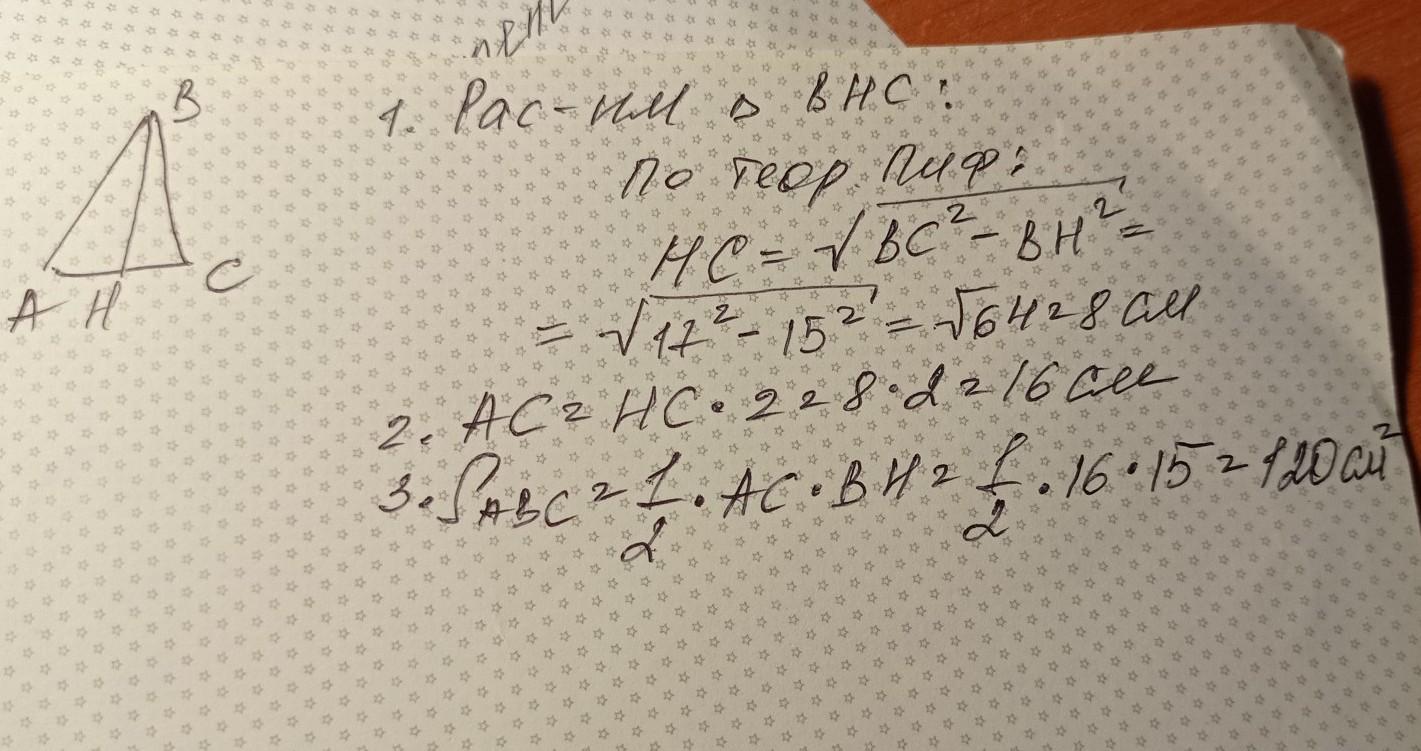 B
A H C
1. Рас-им △ BHC:
По теор. Пиф:
HC = √BC² - BH² =
= √17² - 15² = √64 = 8 см
2. AC = HC · 2 = 8 · 2 = 16 см
3. S ABC = 1/2 · AC · BH = 1/2 · 16 · 15 = 120 см²